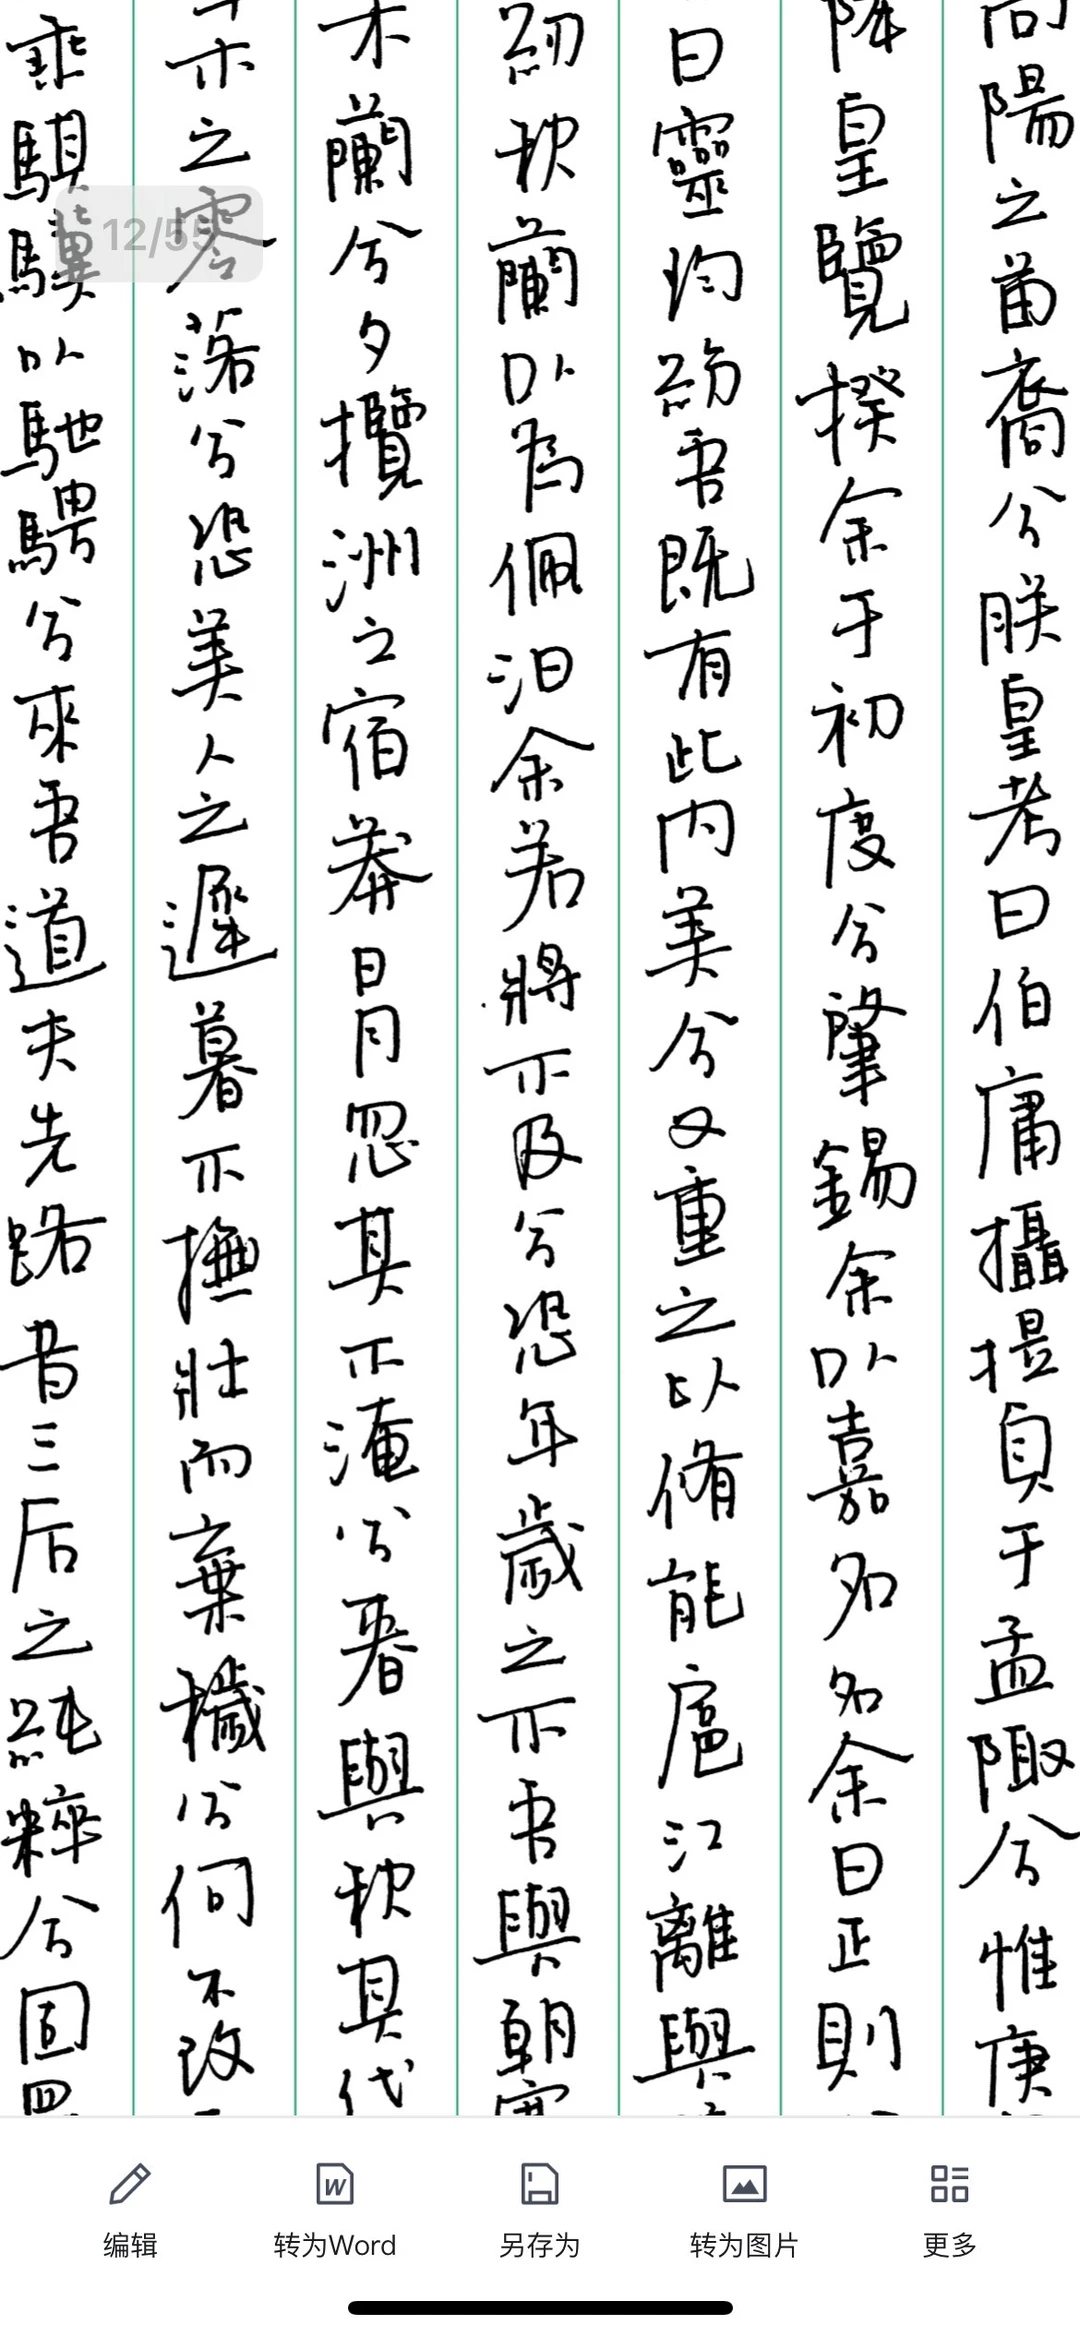 陽之苗裔兮朕皇考曰伯庸攝提貞于孟陬兮惟庚
降皇覽揆余于初度兮肇錫余以嘉名名余曰正則
曰靈均紛吾既有此内美兮又重之以脩能扈江離與
紉秋蘭以為佩汩余若將不及兮恐年歲之不吾與朝
木蘭兮夕攬洲之宿莽日月忽其不淹兮春與秋其代
木之零落兮恐美人之遲暮不撫壯而棄穢兮何不改
乘騏驥以馳騁兮來吾道夫先路昔三后之純粹兮固
12/55
编辑
转为Word
另存为
转为图片
更多